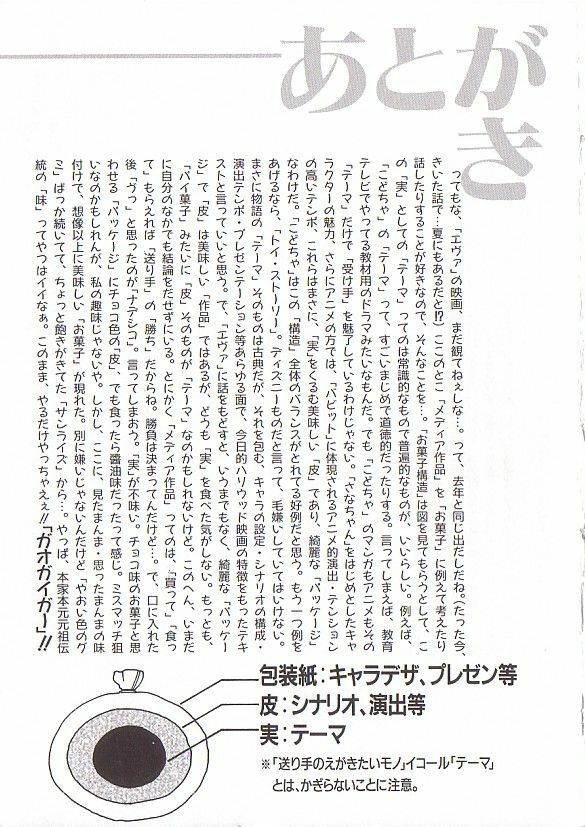 あとがき
　ってもな、「エヴァ」の映画、まだ観てねぇしな…。って、去年と同じ出だしだね。(たった今、
きいた話で…夏にもあるだと!?) ここのとこ「メディア作品」を「お菓子」に例えて考えたり
話したりすることが好きなので、そんなことを…。「お菓子構造」は図を見てもらうとして、こ
の「実」としての「テーマ」ってのは常識的なもので普遍的なものが、いいらしい。例えば、
「こどちゃ」の「テーマ」って、すごいまじめで道徳的だったりする。言ってしまえば、教育
テレビでやってる教材用のドラマみたいなもんだ。でも「こどちゃ」のマンガもアニメもその
「テーマ」だけで「受け手」を魅了しているわけじゃない。「さなちゃん」をはじめとしたキャ
ラクターの魅力、さらにアニメの方では、「バビット」に体現されるアニメ的演出・テンション
の高いテンポ、これらはまさに、「実」をくるむ美味しい「皮」であり、綺麗な「パッケージ」
なわけだ。「こどちゃ」はこの「構造」全体のバランスがとれてる好例だと思う。もう一つ例を
あげるなら、「トイ・ストーリー」。ディズニーものだと言って、毛嫌いしていてはいけない。
まさに物語の「テーマ」そのものは古典だが、それを包む、キャラの設定・シナリオの構成・
演出テンポ・プレゼンテーション等あらゆる面で、今日的ハリウッド映画の特徴をもったテキ
ストと言っていいと思う。で、「エヴァ」に話をもどすと、いうまでもなく、綺麗な「パッケー
ジ」で「皮」は美味しい「作品」ではあるが、どうも「実」を食べた気がしない。もっとも、
「パイ菓子」みたいに「皮」そのものが「テーマ」なのかもしれないけど。このへん、いまだ
に自分のなかでも結論をだせずにいる。とにかく「メディア作品」ってのは、「買って」「食っ
て」もらえれば「送り手」の「勝ち」だからね。勝負は決まってんだけど…。で、口に入れた
後、「ヴっ」と思ったのが「ナデシコ」。言ってしまおう。「実」が不味い。チョコ味のお菓子と思
わせる「パッケージ」にチョコ色の「皮」、でも食ったら醤油味だったって感じ。ミスマッチ狙
いなのかもしれんが、私の趣味じゃないや。しかし、ここに、見たまんま・思ったまんまの味
付けで、想像以上に美味しい「お菓子」が現れた。別に嫌いじゃないんだけど「やおい色のグ
ミ」ばっか続いてて、ちょっと飽きがきてた「サンライズ」から…。やっぱ、本家本元元祖伝
統の「味」ってやつはイイなぁ。このまま、やるだけやっちゃえぇ!!「ガオガイガー」!!
包装紙：キャラデザ、プレゼン等
皮：シナリオ、演出等
実：テーマ
※「送り手のえがきたいモノ」イコール「テーマ」
とは、かぎらないことに注意。